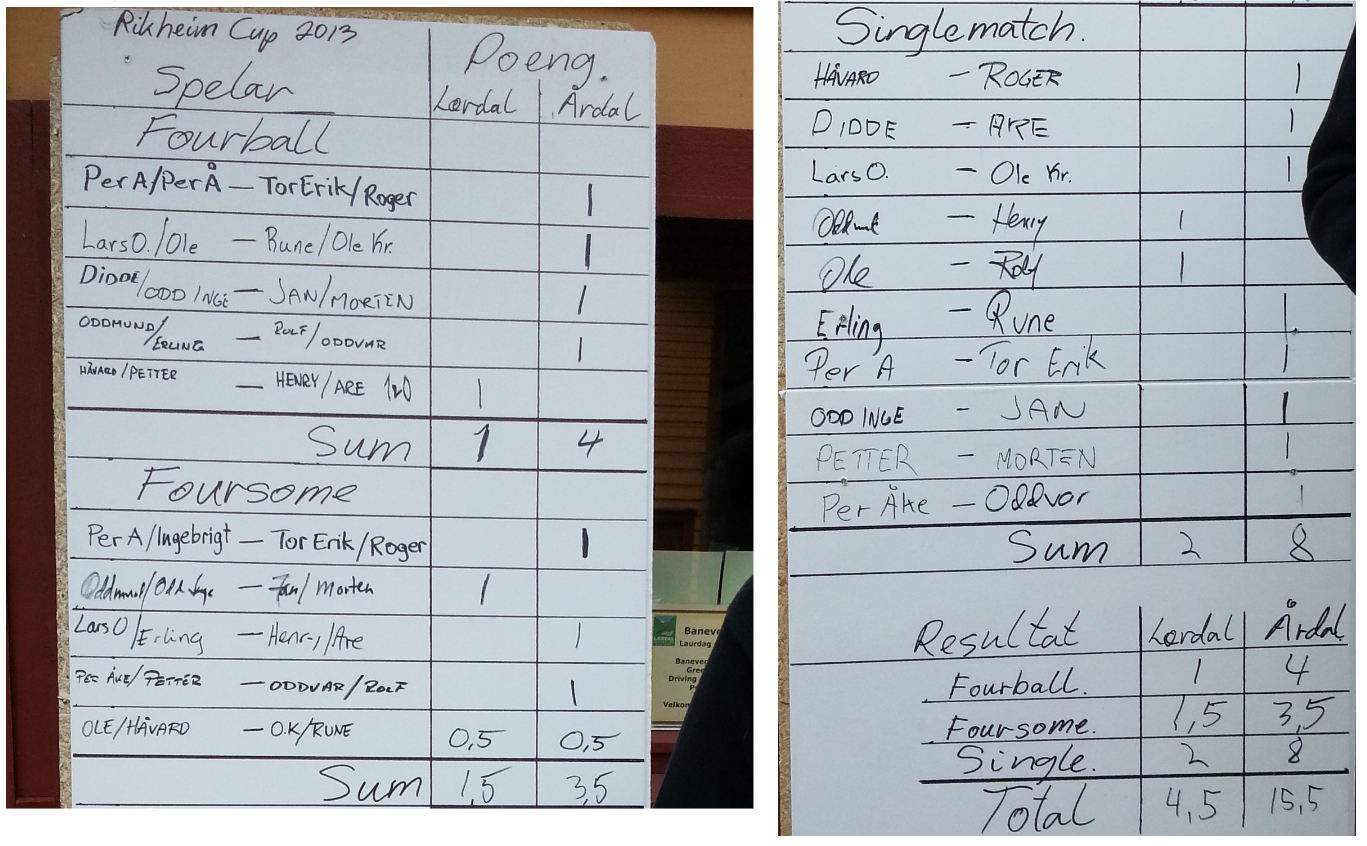 Rikheim Cup 2013
Poeng.
Spelar
Lærdal Årdal
Fourball
Per A/Per Å — Tor Erik/Roger 1
Lars O./Ole — Rune/Ole Kr. 1
DIDDE/ODD INGE — JAN/MORTEN 1
ODDMUND/ERLING — ROLF/ODDVAR 1
HÅVARD/PETTER — HENRY/ARE 1
Sum 1 4
Foursome
Per A/Ingebrigt — Tor Erik/Roger 1
Oddmund/Odd Inge — Jan/Morten 1
Lars O/Erling — Henry/Are 1
PER ÅKE/PETTER — ODDVAR/ROLF 1
OLE/HÅVARD — O.K/RUNE 0,5 0,5
Sum 1,5 3,5
Banev
Laurdag
Banever
Gree
Driving
Velkon
Singlematch.
HÅVARD — ROGER 1
DIDDE — ARE 1
Lars O. — Ole Kr. 1
Oddmund — Henry 1
Ole — Rolf 1
Erling — Rune 1
Per A — Tor Erik 1
ODD INGE — JAN 1
PETTER — MORTEN 1
Per Åke — Oddvar 1
Sum 2 8
Resultat Lærdal Årdal
Fourball. 1 4
Foursome. 1,5 3,5
Single. 2 8
Total 4,5 15,5